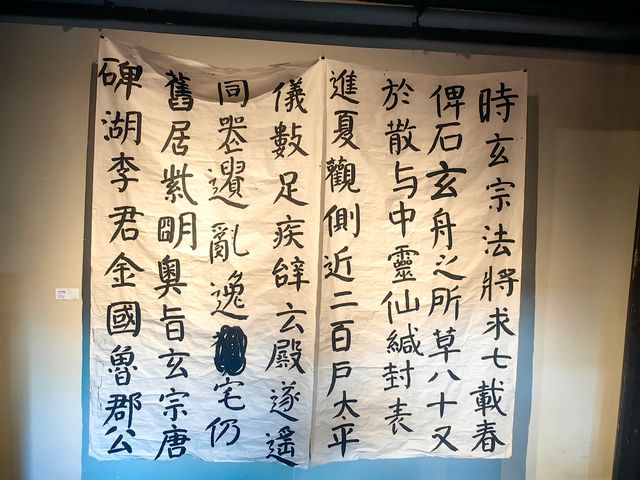 時玄宗法將求七載春
俾石玄舟之所草八十又
於散与中靈仙緘封表
進夏觀側近二百戶太平
儀數足疾辝云殿遂遥
同噐遺亂逸宅仍
舊居紫明奧旨玄宗唐
碑湖李君金國魯郡公